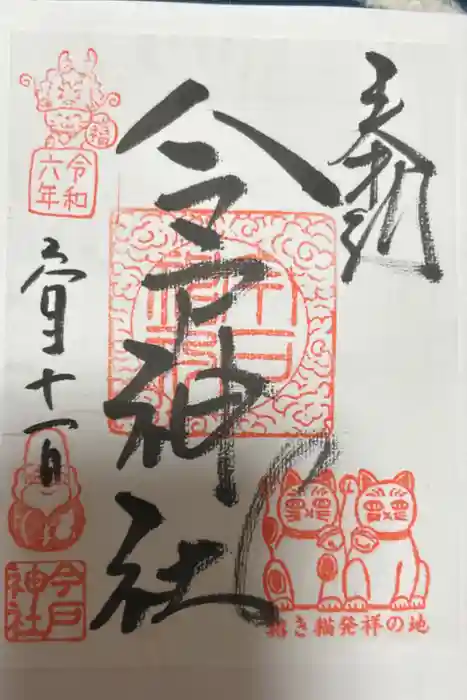 奉納
今戸神社
今戸神社
福
令和
六年
月十一日
今戸
神社
招き猫発祥の地